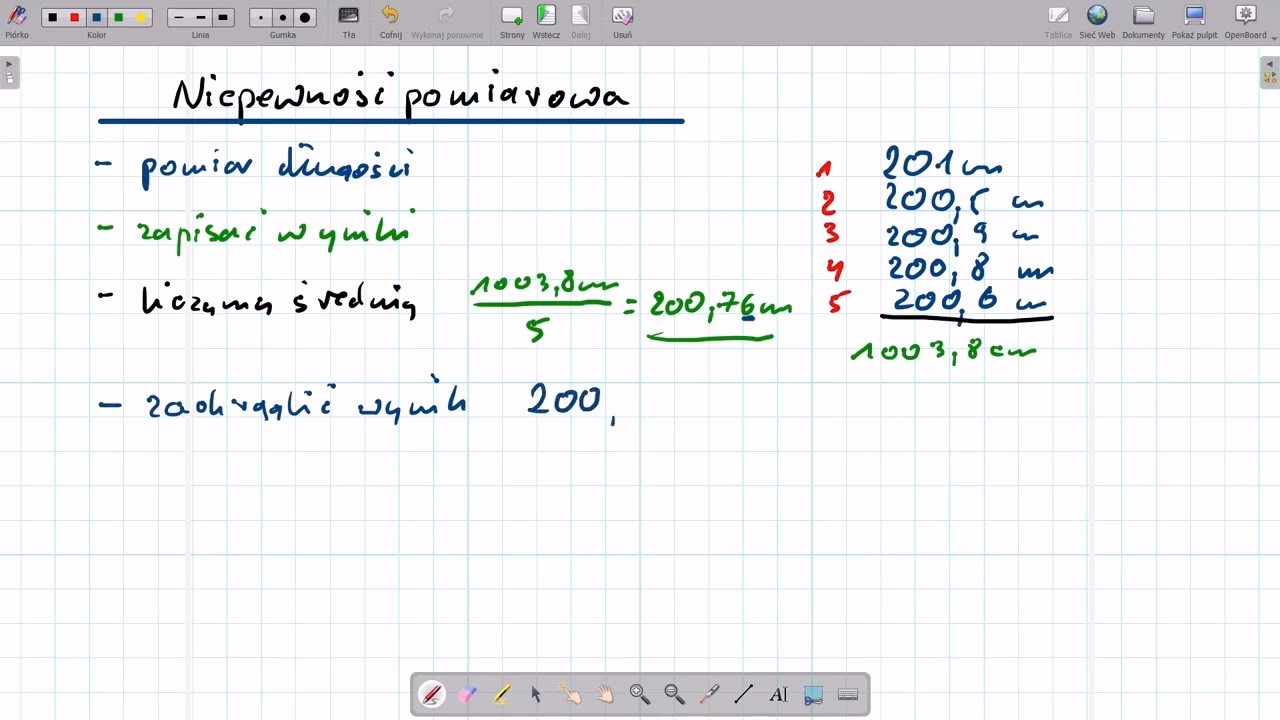 Piórko
Kolor
Linia
Gumka
Tła
Cofnij
Wykonaj ponownie
Strony
Wstecz
Dalej
Usuń
Tablica
Sieć Web
Dokumenty
Pokaż pulpit
OpenBoard
Niepewność pomiarowa
- pomiar długości
- zapisać wyniki
- liczymy średnią 1003,8cm / 5 = 200,76cm
- zaokrąglić wynik 200,
1 201cm
2 200,5 cm
3 200,9 cm
4 200,8 cm
5 200,6 cm
1003,8cm
AI